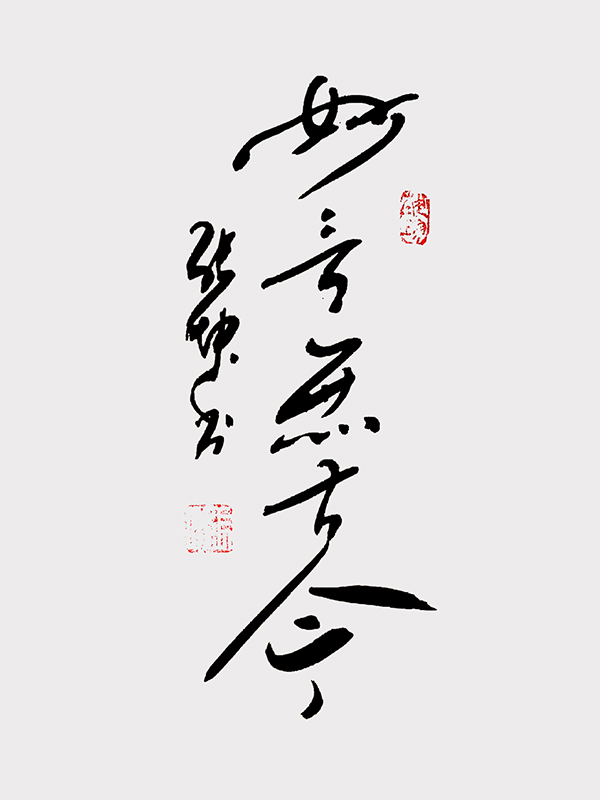 妙音無古今
张坤书